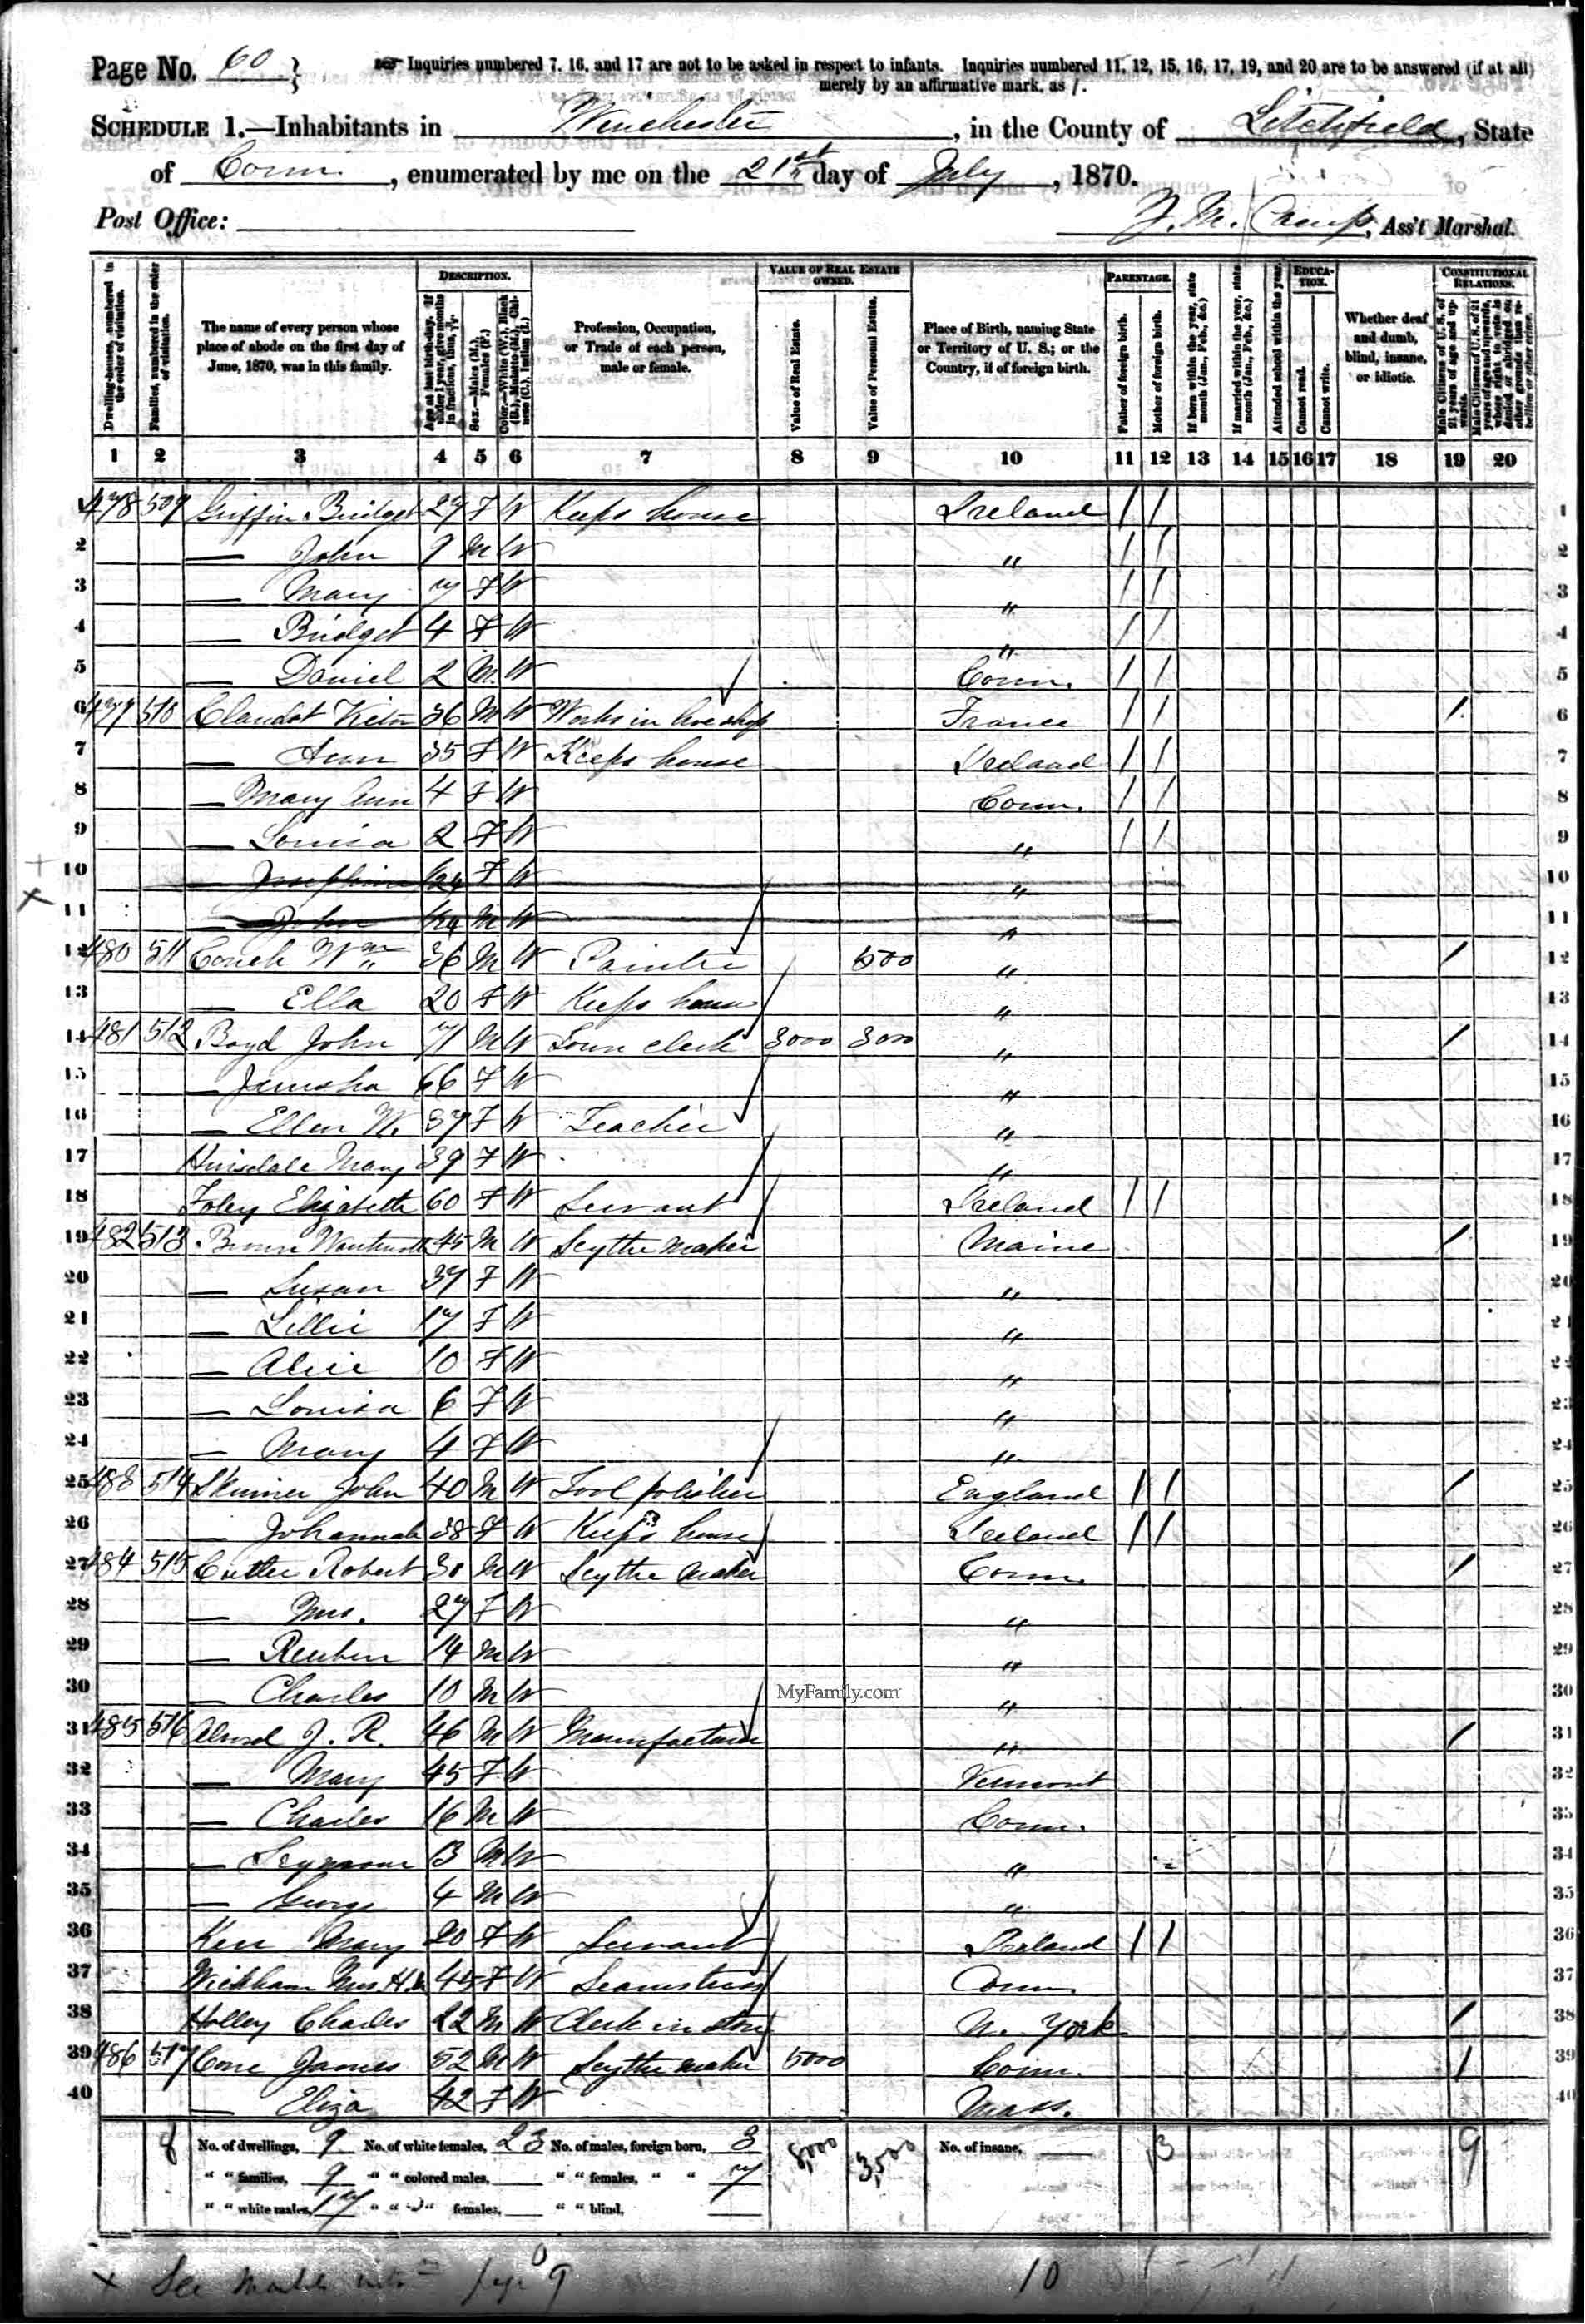 Page No. 60
Inquiries numbered 7, 16, and 17 are not to be asked in respect to infants. Inquiries numbered 11, 12, 15, 16, 17, 19, and 20 are to be answered (if at all)
merely by an affirmative mark, as /.
SCHEDULE 1.—Inhabitants in Winchester, in the County of Litchfield, State
of Conn., enumerated by me on the 21st day of July, 1870.
Post Office:
Camp, Ass't Marshal.
Dwelling-houses, numbered in the order of visitation.
Families, numbered in the order of visitation.
The name of every person whose place of abode on the first day of June, 1870, was in this family.
DESCRIPTION.
Age at last birth-day. If under 1 year, give months in fractions, thus, 3/12
Sex.—Males (M.), Females (F.)
Color.—White (W.), Black (B.), Mulatto (M.), Chinese (C.), Indian (I.)
Profession, Occupation, or Trade of each person, male or female.
VALUE OF REAL ESTATE OWNED.
Value of Real Estate.
Value of Personal Estate.
Place of Birth, naming State or Territory of U. S.; or the Country, if of foreign birth.
PARENTAGE.
Father of foreign birth.
Mother of foreign birth.
If born within the year, state month (Jan., Feb., &c.)
If married within the year, state month (Jan., Feb., &c.)
Attended school within the year.
EDUCATION.
Cannot read.
Cannot write.
Whether deaf and dumb, blind, insane, or idiotic.
CONSTITUTIONAL RELATIONS.
Male Citizens of U. S. of 21 years of age and upwards.
1 2 3 4 5 6 7 8 9 10 11 12 13 14 15 16 17 18 19 20
1 478 509 Griffin Bridget 27 F W Keeps house Ireland / / 1
2 — John 9 M W " / / 2
3 — Mary 7 F W " / / 3
4 — Bridget 4 F W " / / 4
5 — Daniel 2 M W Conn. / / 5
6 479 510 Claudot Victor 36 M W Works in hoe shop France / / / 6
7 — Ann 35 F W Keeps house Ireland / / 7
8 — Mary Ann 4 F W Conn. / / 8
9 — Louisa 2 F W " / / 9
10 — Josephine F W " 10
11 — John M W " 11
12 480 511 Couch Wm 36 M W Painter 500 " / 12
13 — Ella 20 F W Keeps house " 13
14 481 512 Boyd John 71 M W Town clerk 3000 3000 " / 14
15 — Jerusha 66 F W " 15
16 — Ellen W. 37 F W Teacher " 16
17 Hinsdale Mary 39 F W " 17
18 Foley Elizabeth 60 F W Servant Ireland / / 18
19 482 513 Brown Wentworth 45 M W Scythe maker Maine / 19
20 — Susan 37 F W " 20
21 — Lillie 17 F W " 21
22 — Alice 10 F W " 22
23 — Louisa 6 F W " 23
24 — Mary 4 F W " 24
25 483 514 Skinner John 40 M W Tool polisher England / / / 25
26 — Johannah 38 F W Keeps house Ireland / / 26
27 484 515 Cutler Robert 30 M W Scythe maker Conn. / 27
28 — Mrs. 27 F W " 28
29 — Reuben 14 M W " 29
30 — Charles 10 M W " 30
MyFamily.com
31 485 516 Alvord J. R. 46 M W Manufacturer " / 31
32 — Mary 45 F W Vermont 32
33 — Charles 16 M W Conn. 33
34 — Seymour 13 M W " 34
35 — George 4 M W " 35
36 Kerr Mary 20 F W Servant Ireland / / 36
37 Wickham Mrs. 45 F W Seamstress Conn. 37
38 Holley Charles 22 M W Clerk in store N. York / 38
39 486 517 Cone James 52 M W Scythe maker 5000 Conn. / 39
40 — Eliza 42 F W Mass. 40
8 No. of dwellings, 9 No. of white females, 23 No. of males, foreign born, 3 8,000 3,500 No. of insane, 13 9
" " families, 9 " " colored males, " " females, " " 7
" " white males, 17 " " " females, " " blind,
x See page 9 10